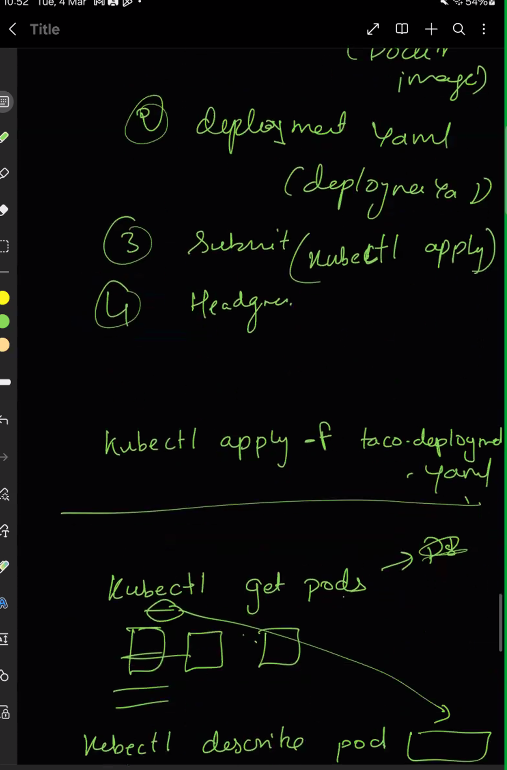 10:52 Tue, 4 Mar
54%
Title
image)
② deployment yaml
③ Submit (kubectl apply)
④
kubectl apply -f taco-deployment
.yaml
Kubectl get pods →
Kubectl describe pod